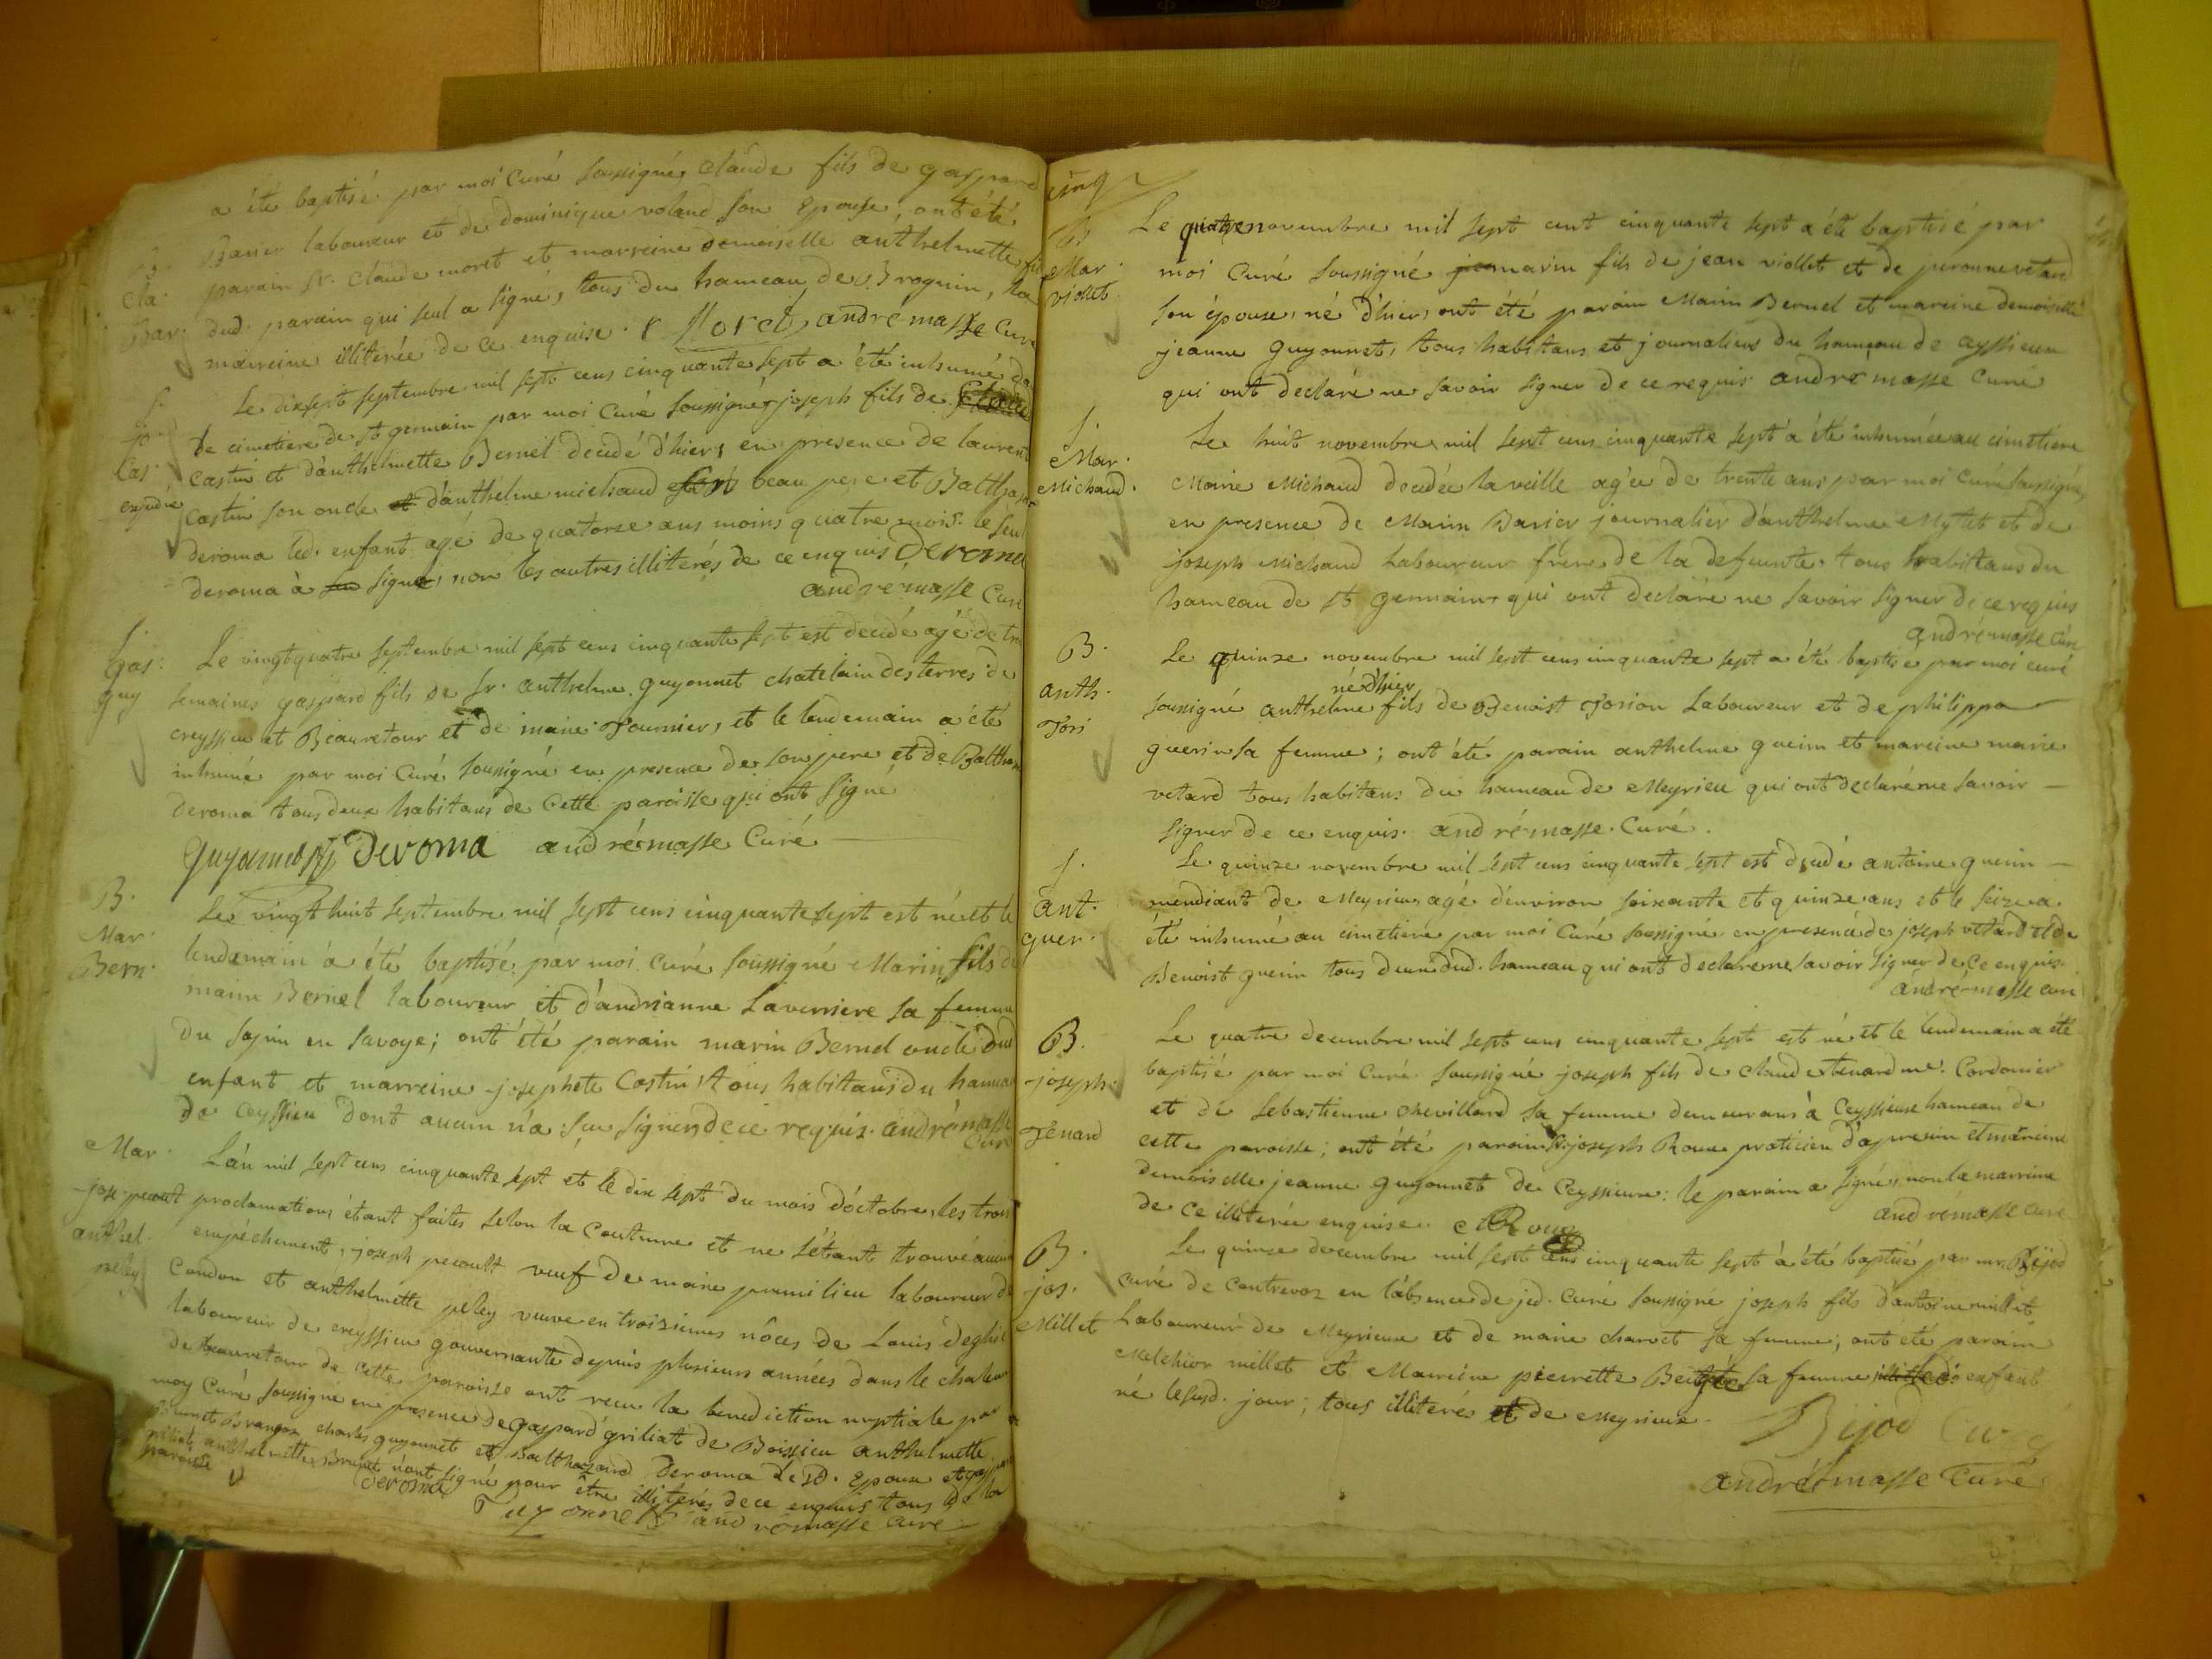 a été baptisé par moi Curé soussigné, Claude fils de gaspard
B. Barier laboureur et de dominique voland son Epouse; ont été
Cla. parain Sr. Claude moret et marreine demoiselle anthelmette
Bar. dud. parain qui seul a signé, tous du hameau de Brognin, la
marreine illiterée de ce enquise. Moret andremasse Curé
S. Le dixsept septembre mil sept cens cinquante sept a été inhumé
jo. le cimetiere de st germain par moi Curé soussigné joseph fils de
Cas. Castin et d'anthelmette Bernel decedé d'hier, en presence de laurent
Castin son oncle d'anthelme michaud beau pere et Balthasar
deroma led. enfant agé de quatorze ans moins quatre mois. le seul
deroma à signé, non les autres illiterés de ce enquis Deroma
andremasse Curé
S. gas: Le vingtquatre septembre mil sept cens cinquante sept est decedé agé de
guy semaines gaspard fils de Sr. anthelme guyonnet chatelain des terres de
creyssieu et Beauretour et de marie Tournier, et le lendemain a été
inhumé par moi Curé soussigné en presence de son pere et de Balthasar
deroma tous deux habitans de cette paroisse qui ont signé
Guyonnet Deroma andrémasse Curé
B. Le vingt huit septembre mil sept cens cinquante sept est né et le
Mar. lendemain à été baptisé par moi Curé soussigné Marin fils de
Bern. marin Bernel laboureur et d'andrianne Laverriere sa femme
du sapin en savoye; ont été parain marin Bernel oncle dud
enfant et marreine josephete Castin, tous habitans du hameau
de Ceyssieu dont aucun n'a sçu signer, de ce requis. andrémasse
Curé
Mar. L'an mil sept cens cinquante sept et le dix sept du mois d'octobre, les trois
jos. pecout proclamations étant faites selon la Coutume et ne s'étant trouvé aucun
anthel. empéchement, joseph pecoult veuf de marie premilieu laboureur de
peley Condon et anthelmette peley veuve en troisiemes nôces de Louis deglise
laboureur de creyssieu gouvernante depuis plusieurs années dans le chateau
de beauretour de cette paroisse ont receu la benediction nuptiale par
moy Curé soussigné en presence de gaspard griliat de Boissieu anthelmette
Brunet Brangoz charles guyonnet et Balthazard deroma Lesd. Epoux et gaspard
griliat anthelmette Brunet n'ont signé pour être illiterés de ce enquis tous de la
paroisse Deroma
Guyonnet andrémasse Curé
cinq
B. Le quatre novembre mil sept cent cinquante sept a été baptisé par
Mar. moi Curé soussigné marin fils de jean viollet et de peronne vetard
viollet son épouse, né d'hier, ont été parain Marin Bernel et mareine demoiselle
jeanne guyonnet, tous habitans et journaliers du hameau de ceyssieu
qui ont declaré ne savoir signer de ce requis andremasse Curé
S. Le huit novembre mil sept cens cinquante sept a été inhumée au cimetiere
Mar. Marie Michaud decedée la veille agée de trente ans par moi Curé soussigné
Michaud. en presence de Marin Barier journalier d'anthelme Mytet et de
joseph Michaud Laboureur frere de la defuncte, tous habitans du
hameau de st germain qui ont declaré ne savoir signer de ce requis
andrémasse Curé
B. Le quinze novembre mil sept cens cinquante sept a été baptisé par moi curé
anth. soussigné anthelme né d'hier fils de Benoist Torion Laboureur et de philippa
Tori guerin sa femme; ont été parain anthelme guerin et mareine marie
vetard tous habitans du hameau de Meyrieu qui ont declaré ne savoir
signer de ce enquis. andrémasse. Curé.
S. Le quinze novembre mil sept cens cinquante sept est decedé antoine guerin
ant. mendiant de Meyrieu, agé d'environ soixante et quinze ans et le seize a
guer. été inhumé au cimetiere par moi Curé soussigné en presence de joseph vetard et de
Benoist guerin tous deux dud. hameau qui ont declaré ne savoir signer de ce enquis.
andrémasse curé
B. Le quatre decembre mil sept cens cinquante sept est né et le lendemain a été
joseph. baptisé par moi Curé soussigné joseph fils de claude tenard me. Cordonier
et de sebastienne chevillard sa femme demeurans à Ceyssieux hameau de
Tenard cette paroisse; ont été parain Sr. joseph Roux praticien d'apremin et mareine
demoiselle jeanne guyonnet de Ceyssieux: le parain a signé, non la marreine
de ce illiterée enquise. Roux andrémasse curé
B. Le quinze decembre mil sept cens cinquante sept à été baptisé par mr. Bejod
jos. curé de Contrevoz en l'absence de jed. Curé soussigné joseph fils d'antoine millet
Millet Laboureur de Meyrieux et de marie charvet sa femme; ont été parain
Melchior millet et Marreine pierrette sa femme enfant
né lesusd. jour; tous illiterés de Meyrieux.
Bejod Curé
andrémasse Curé